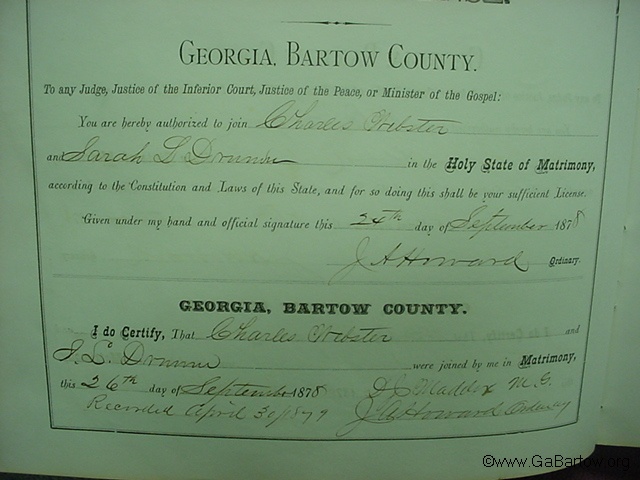 GEORGIA, BARTOW COUNTY.
To any Judge, Justice of the Inferior Court, Justice of the Peace, or Minister of the Gospel:
You are hereby authorized to join Charles Webster
and Sarah L in the Holy State of Matrimony,
according to the Constitution and Laws of this State, and for so doing this shall be your sufficient License.
Given under my hand and official signature this 24th day of September 1878
J A Howard Ordinary.
GEORGIA, BARTOW COUNTY.
I do Certify, That Charles Webster and
were joined by me in Matrimony,
this 26th day of September 1878 Maddox M. G.
Recorded April 30/1879 J A Howard Ordinary
©www.GaBartow.org